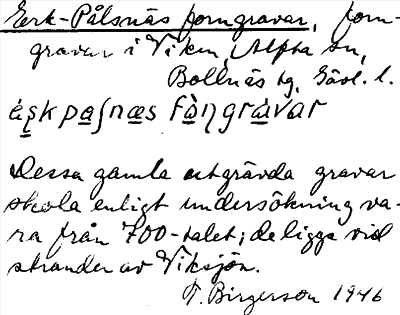 Erk-Pålsnäs forngravar, forn-
gravar i Viken, Alfta sn,
Bollnäs tg, Gävl. l.
ạ̊skpasnæs fàngràvar
Dessa gamla utgrävda gravar
skola enligt undersökning va-
ra från 700-talet; de ligga vid
stranden av Viksjön.
T. Birgerson 1946